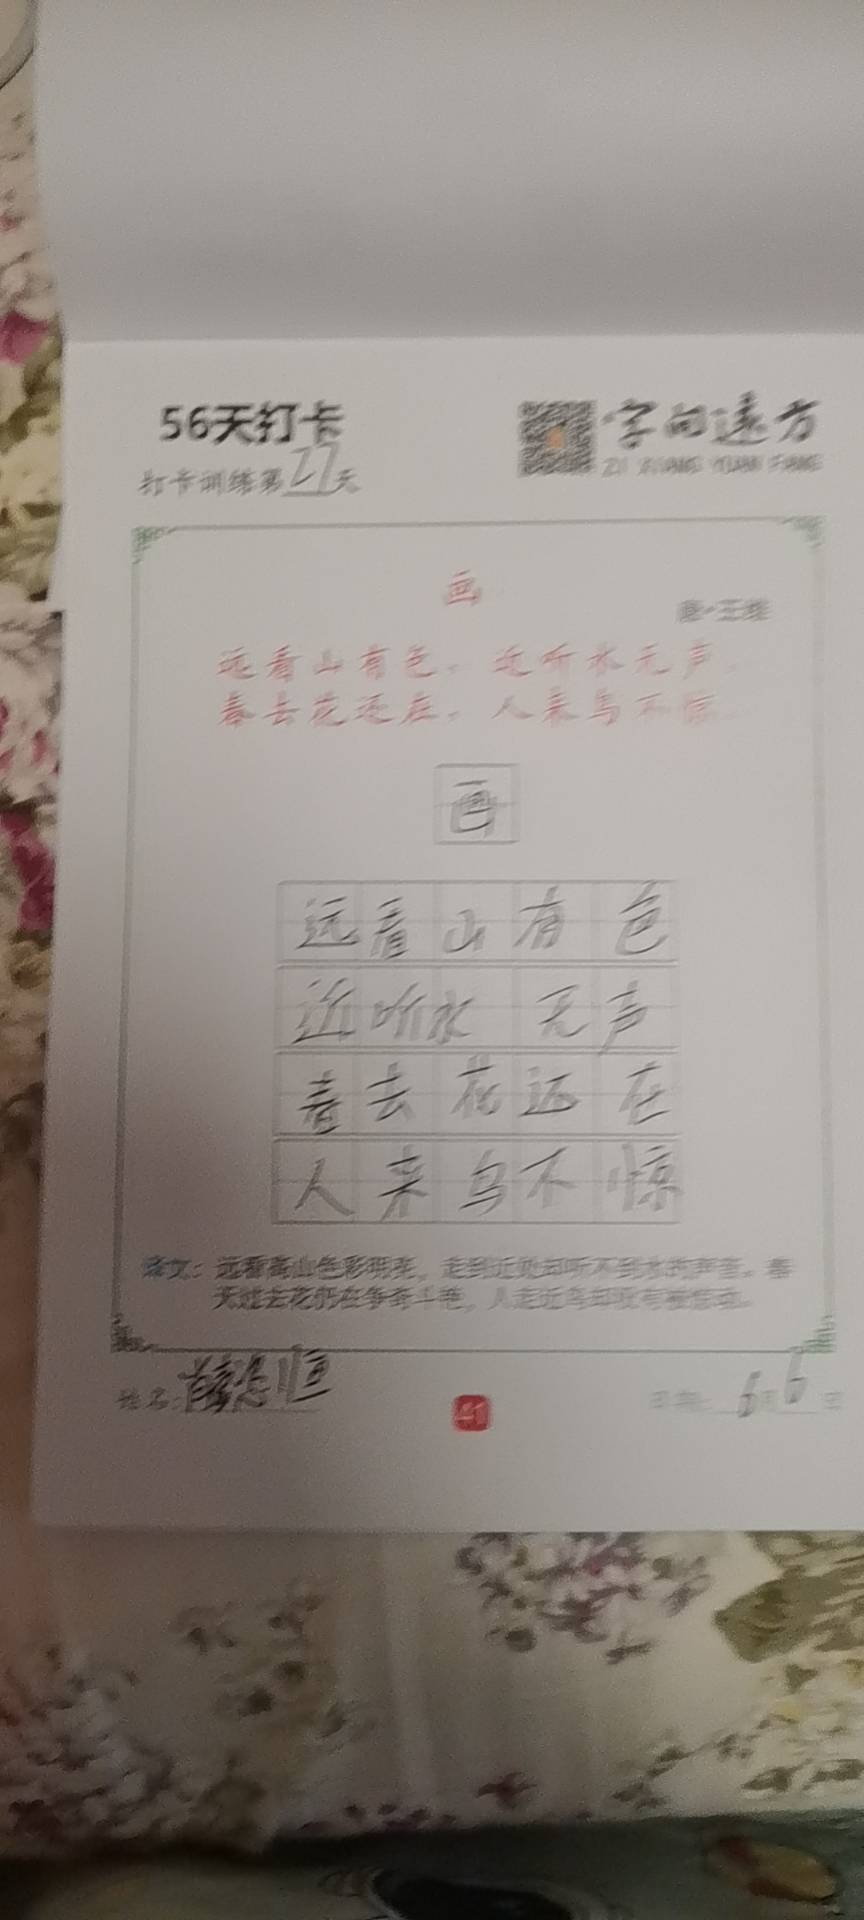 56天打卡
字向远方
打卡训练第27天
ZI XIANG YUAN FANG
画
唐·王维
远看山有色，近听水无声。
春去花还在，人来鸟不惊。
画
远看山有色
近听水无声
春去花还在
人来鸟不惊
译文：远看高山色彩明亮，走到近处却听不到水的声音。春
天过去花仍在争奇斗艳，人走近鸟却没有被惊动。
姓名：
41
日期：6月6日